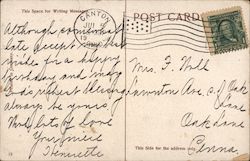 This Space for Writing Messages
POST CARD
CANTON
JUL
Although somewhat
late accept my best
wishes for a happy
birthday and may
God's richest blessings
always be yours.
With lots of love
Your niece
Henrietta
Mrs. F. Holl
Ave. & Oak
Lane
Oak Lane
Penna.
This side for the address only.
13